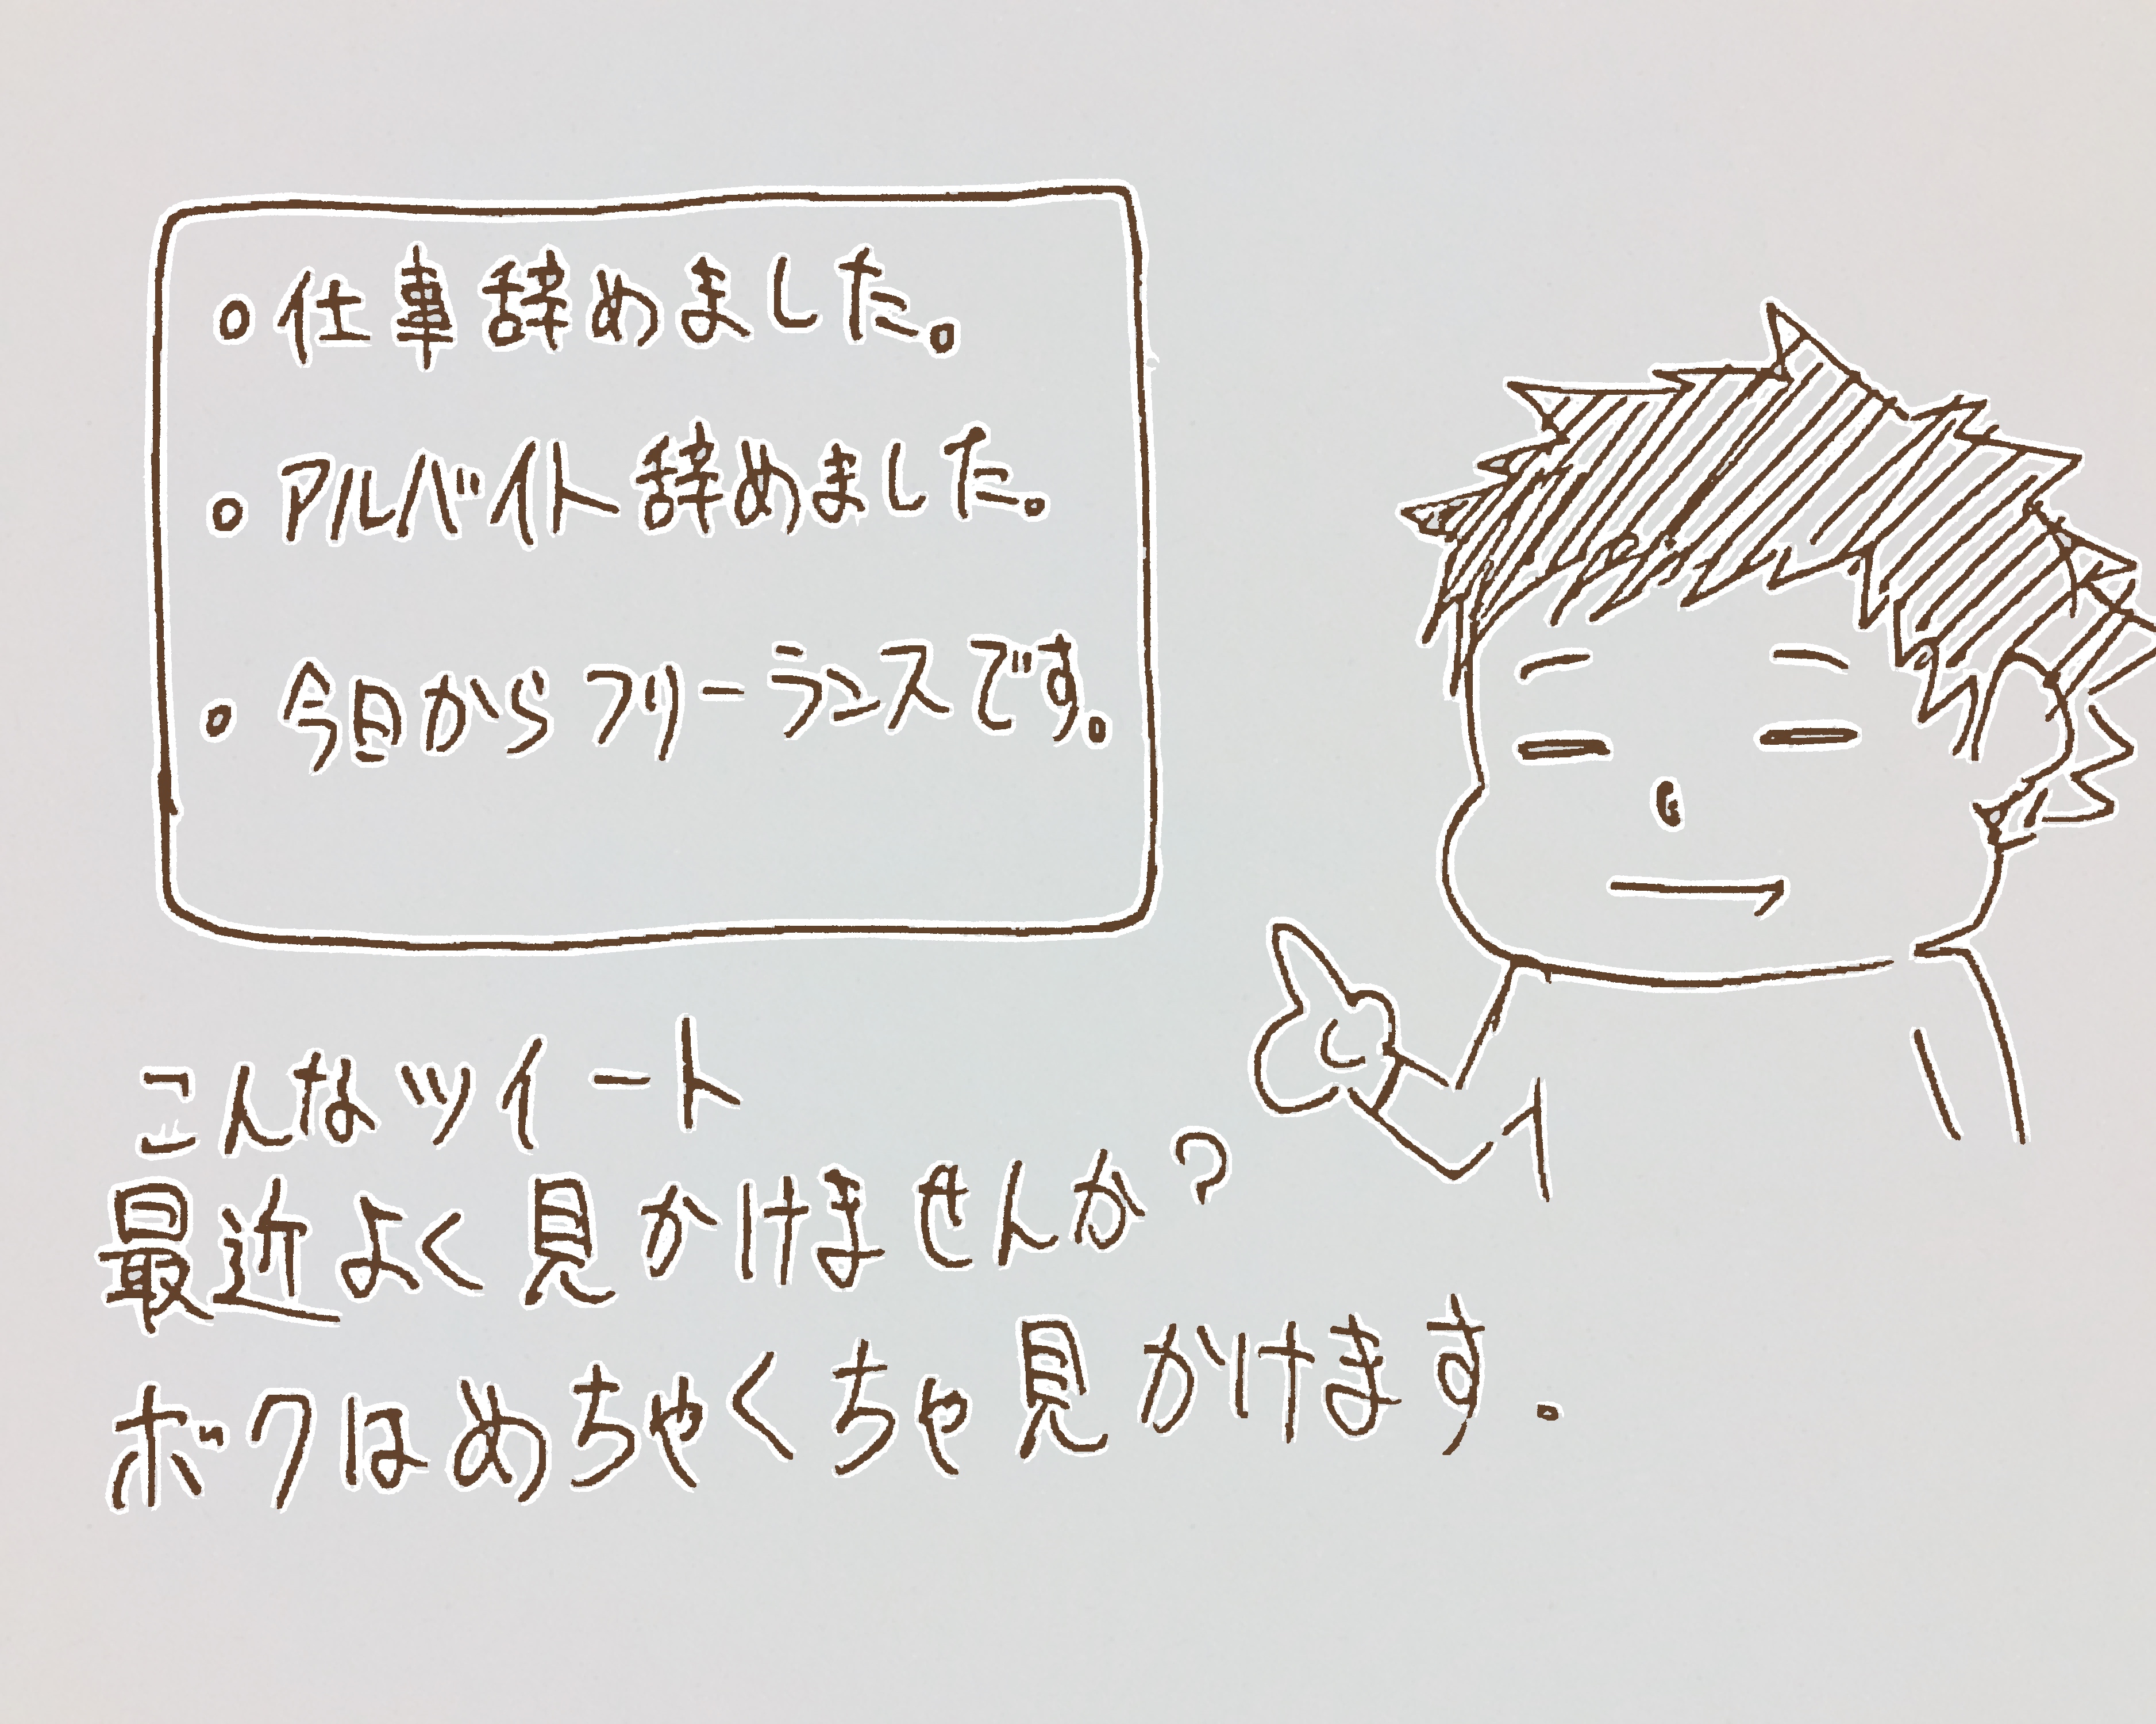 。仕事辞めました。
。アルバイト辞めました。
。今日からフリーランスです。
こんなツイート
最近よく見かけませんか?
ボクはめちゃくちゃ見かけます。